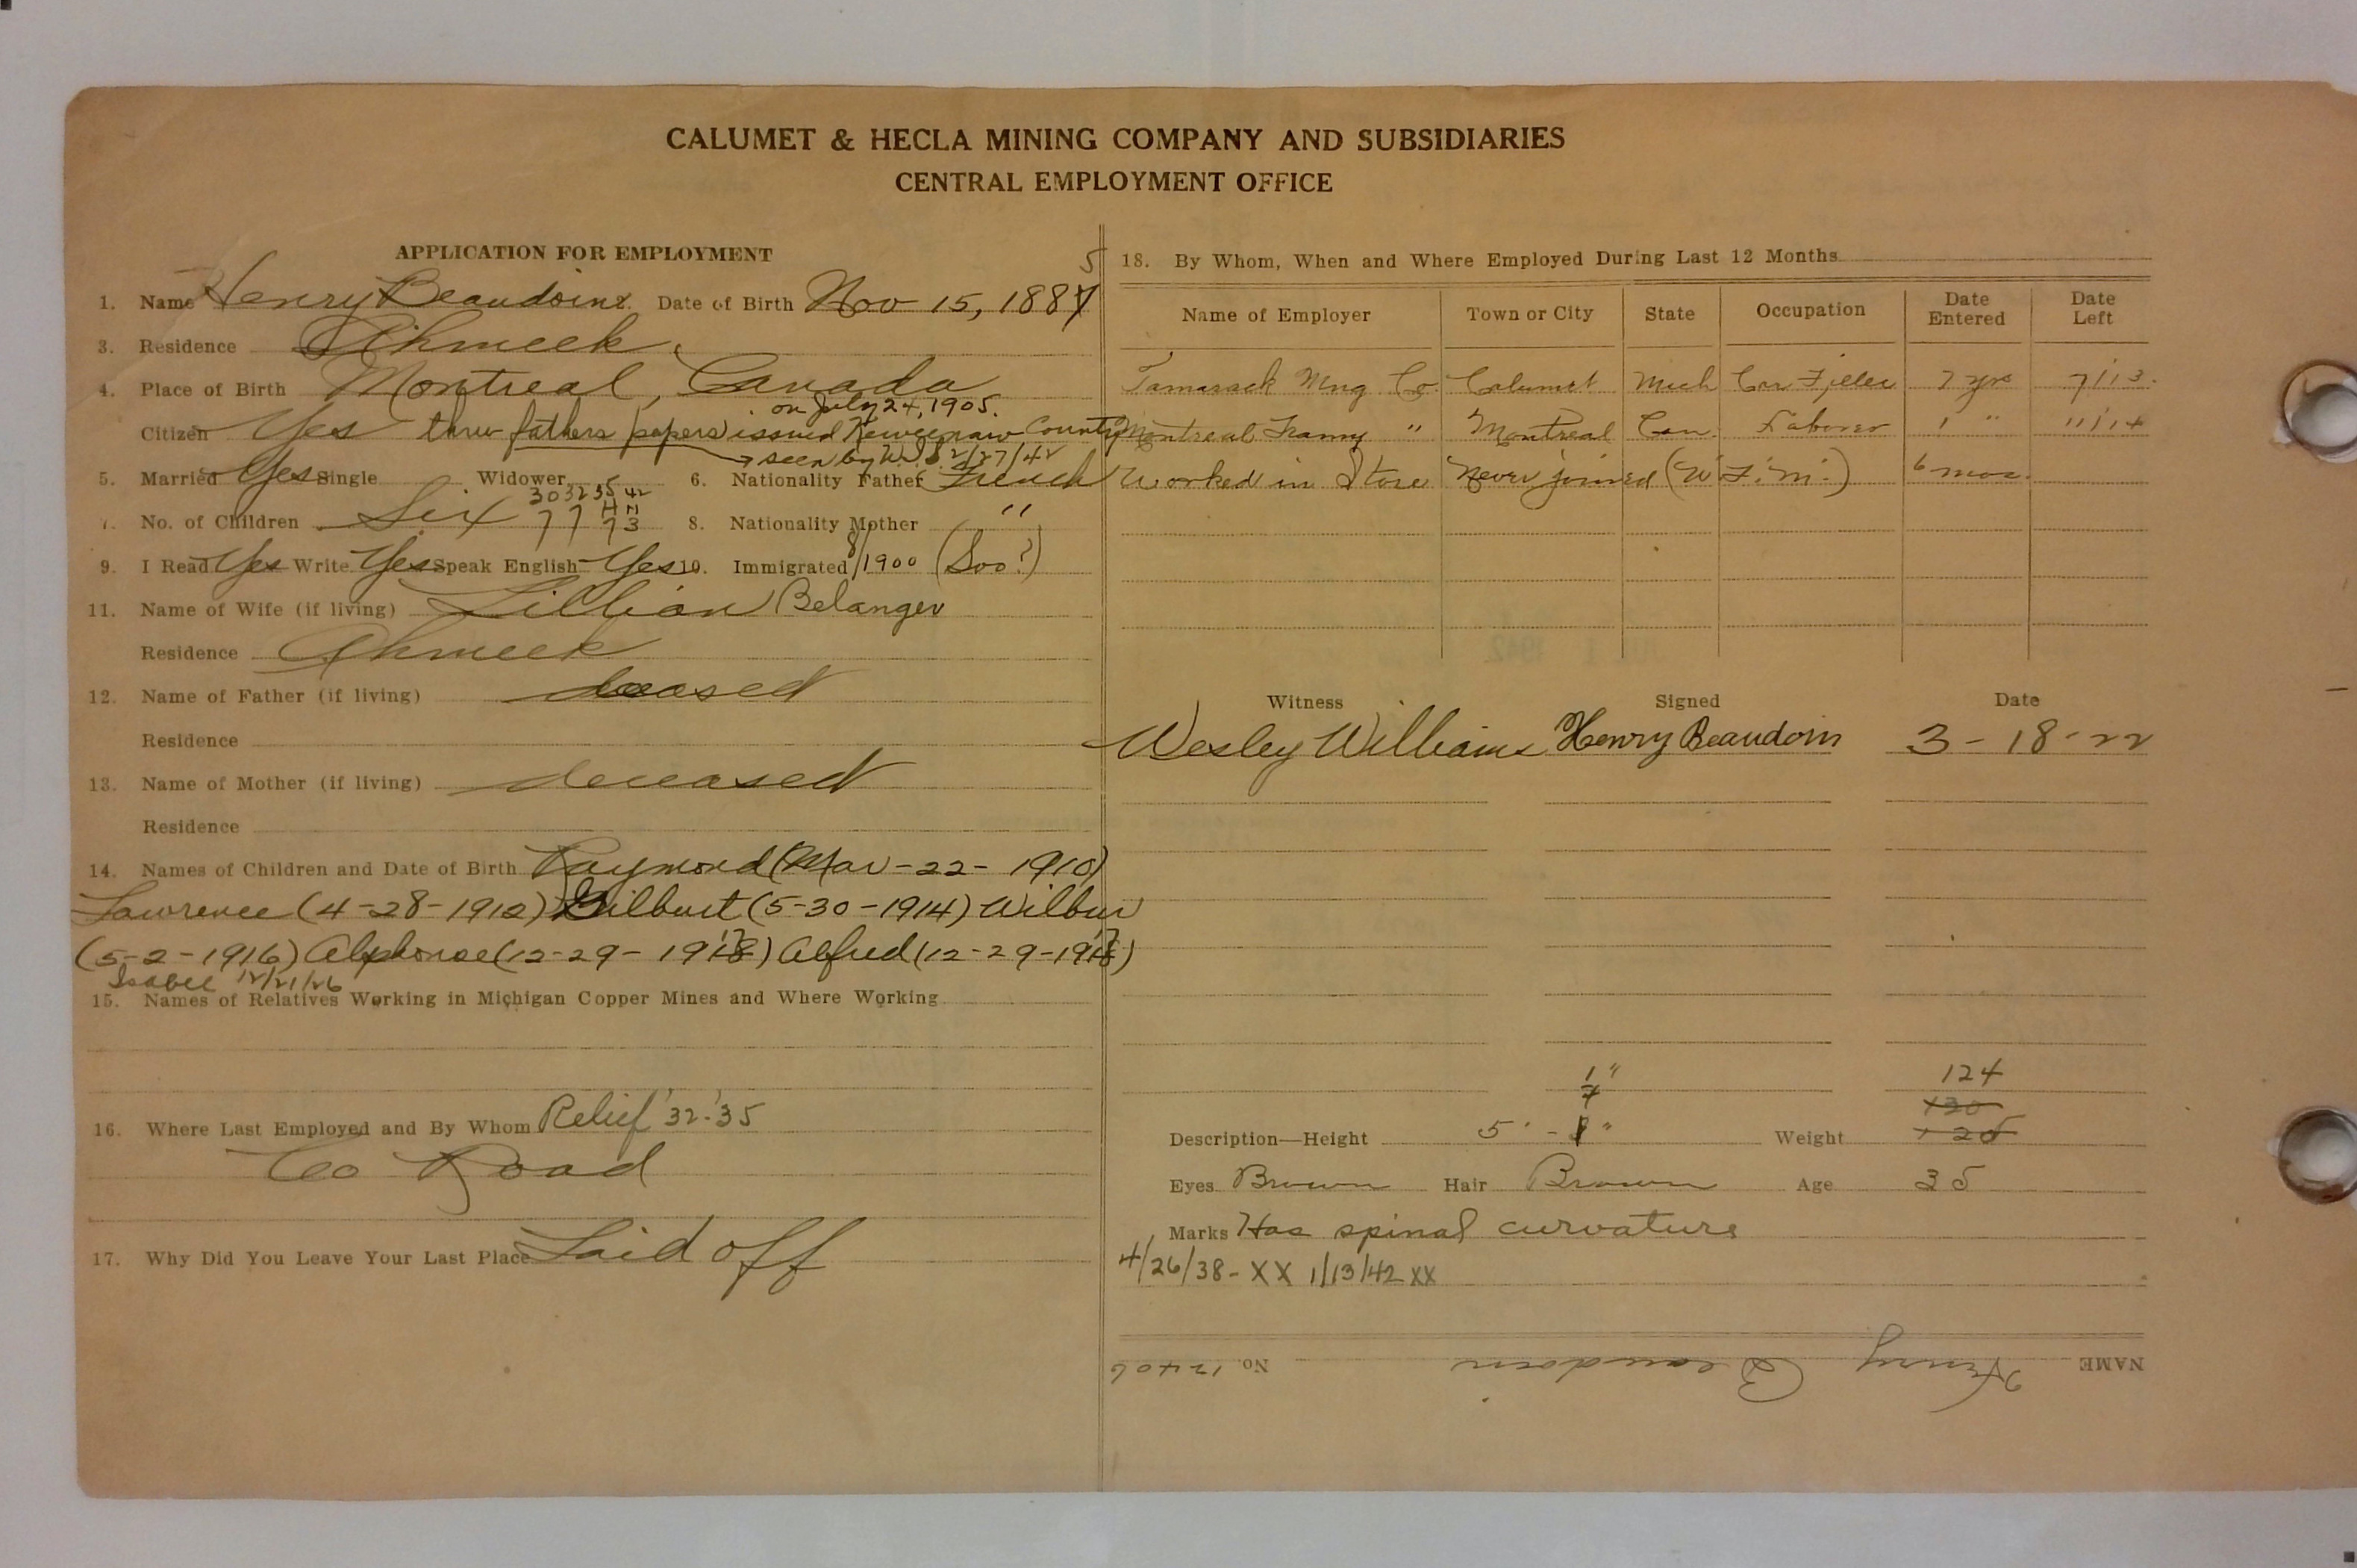 CALUMET & HECLA MINING COMPANY AND SUBSIDIARIES
CENTRAL EMPLOYMENT OFFICE
APPLICATION FOR EMPLOYMENT
5
1. Name Henry Beaudoin Date of Birth Nov 15, 1887
3. Residence Ahmeek
4. Place of Birth Montreal, Canada
on July 24, 1905.
Citizen Yes thru fathers papers issued Keweenaw County
seen by 2/27/42
5. Married Yes Single Widower 6. Nationality Father French
30 32 35 42
7. No. of Children Six 7 7 7 3 8. Nationality Mother "
9. I Read Yes Write Yes Speak English Yes 10. Immigrated 8/1900 (Soo?)
11. Name of Wife (if living) Lillian Belanger
Residence Ahmeek
12. Name of Father (if living) deceased
Residence
13. Name of Mother (if living) deceased
Residence
14. Names of Children and Date of Birth Raymond (Mar-22-1910)
Lawrence (4-28-1912) Gilbert (5-30-1914) Wilbur
(5-2-1916) Alphonse (12-29-1918) Alfred (12-29-1918)
Isabel 12/21/26
15. Names of Relatives Working in Michigan Copper Mines and Where Working
16. Where Last Employed and By Whom Relief '32-'35
Co Road
17. Why Did You Leave Your Last Place Laid off
18. By Whom, When and Where Employed During Last 12 Months
Name of Employer Town or City State Occupation Date Entered Date Left
Tamarack Mng Co. Calumet Mich Car Filler 7 yrs 7/13.
Montreal Tramy " Montreal Can. Laborer 1 " 11/14
Worked in Store Never joined (W.F.M.) 6 mos.
Witness Signed Date
Wesley Williams Henry Beaudoin 3-18-22
1" 124
7 130
Description—Height 5'- " Weight 126
Eyes Brown Hair Brown Age 35
Marks Has spinal curvature
4/26/38-XX 1/13/42 XX
NAME Henry Beaudoin No. 12406